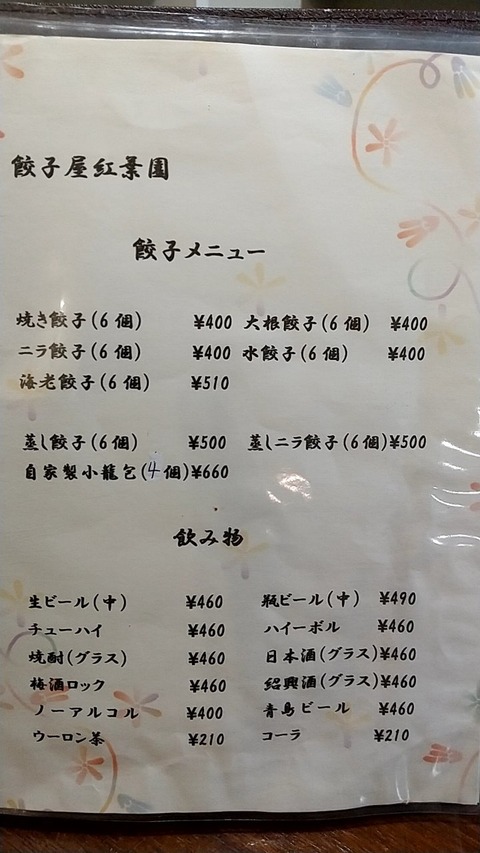 餃子屋紅葉園
餃子メニュー
焼き餃子(6個) ¥400 大根餃子(6個) ¥400
ニラ餃子(6個) ¥400 水餃子(6個) ¥400
海老餃子(6個) ¥510
蒸し餃子(6個) ¥500 蒸しニラ餃子(6個)¥500
自家製小龍包(4個)¥660
飲み物
生ビール(中) ¥460 瓶ビール(中) ¥490
チューハイ ¥460 ハイーボル ¥460
焼酎(グラス) ¥460 日本酒(グラス)¥460
梅酒ロック ¥460 紹興酒(グラス)¥460
ノーアルコル ¥400 青島ビール ¥460
ウーロン茶 ¥210 コーラ ¥210